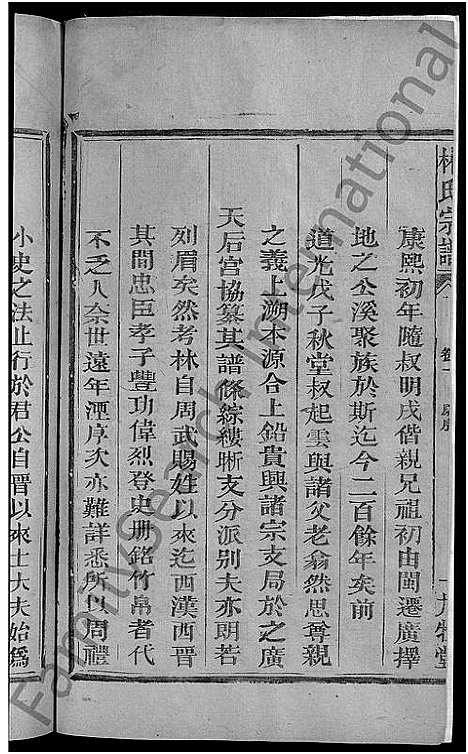 林氏宗譜 卷一
康熙初年隨叔明戌偕親兄祖初由閩遷廣擇
地之公溪聚族於斯迄今二百餘年矣前
道光戊子秋堂叔起雲與諸父老翁然思尊親
之義上溯木源合上鉛貴興諸宗支局於之廣
天后宮協纂其譜條綜縷晰支分派別夫亦朗若
列眉矣然考林自周武賜姓以來迄西漢西晉
其間忠臣孝子豐功偉烈登史冊銘竹帛者代
不乏人奈世遠年湮序次亦難詳悉所以周禮
小史之法止行於君公自晉以來士大夫始為
FamilySearch International